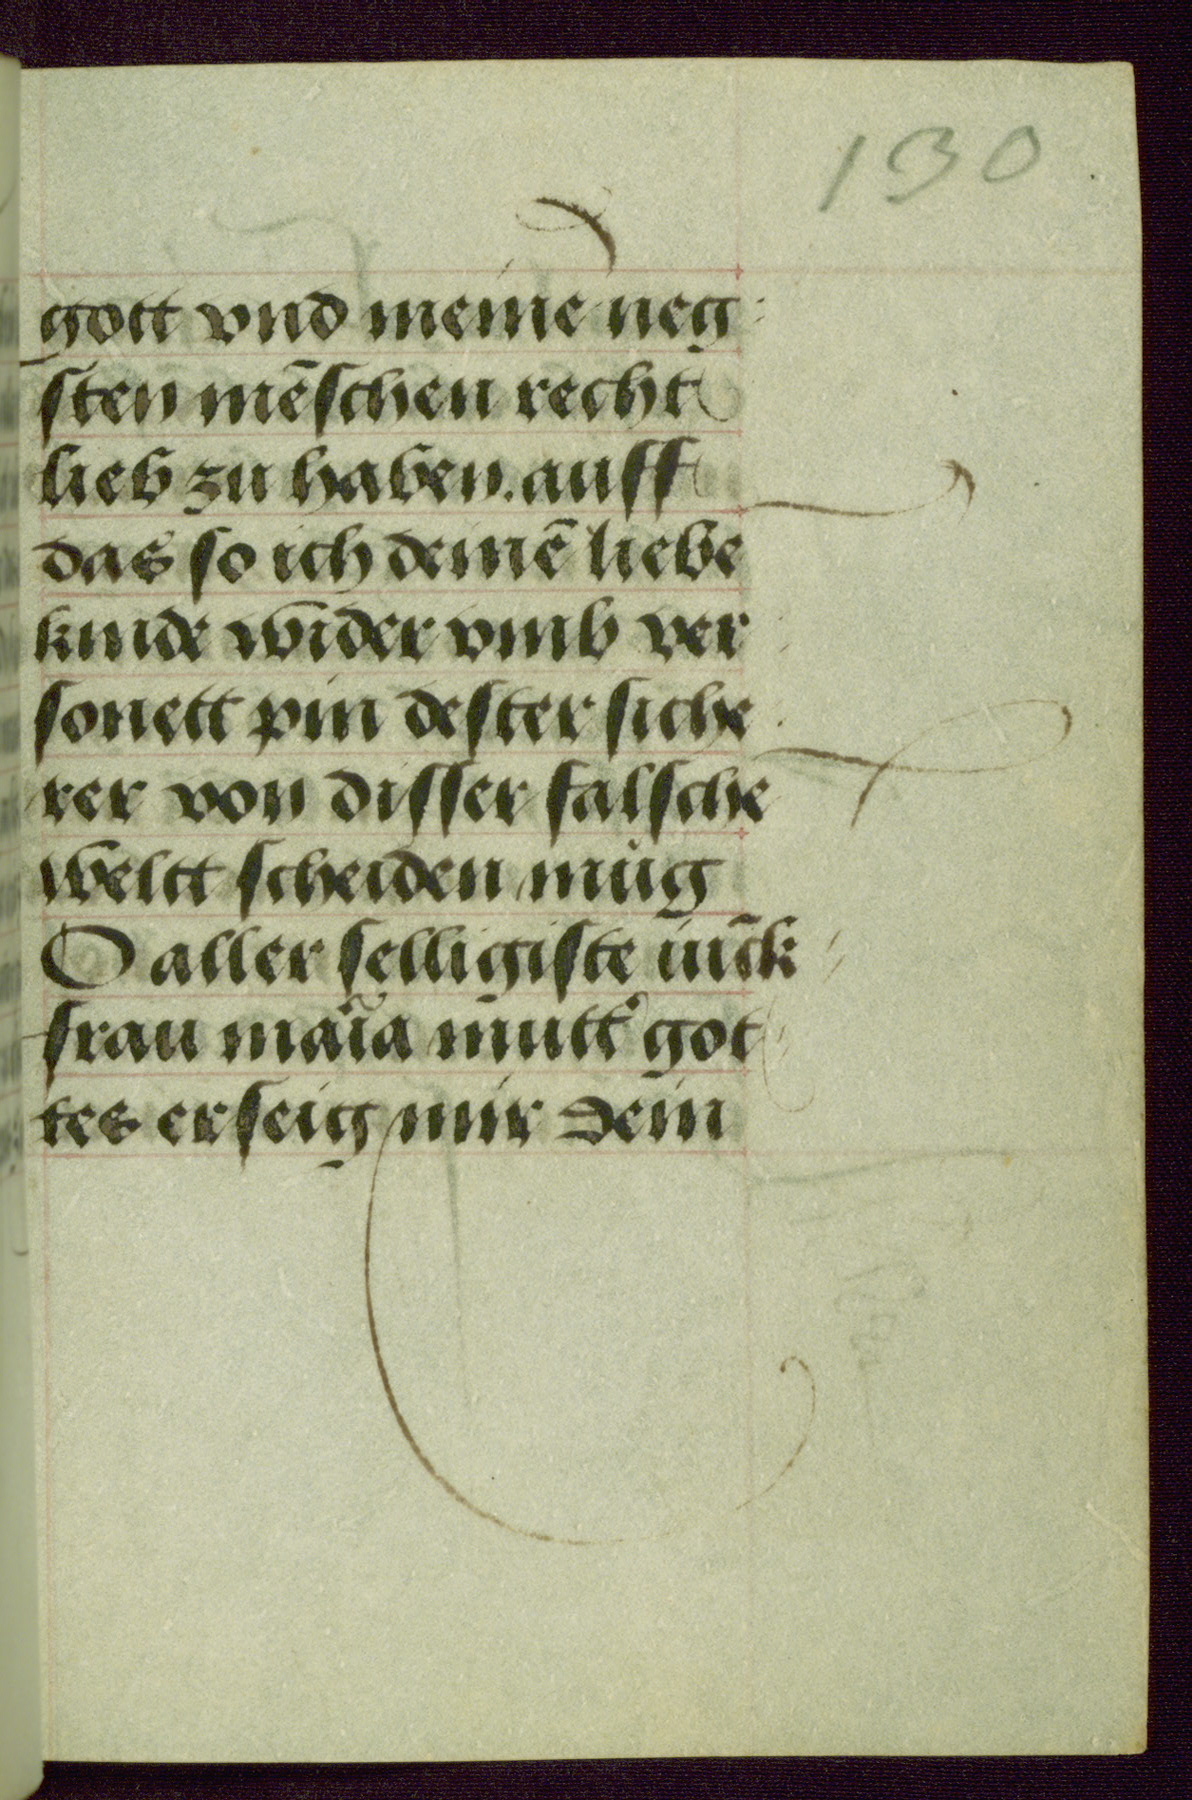 130
gott vnd meine neg
sten mēschen recht
lieb zu haben. auff
das so ich deinē liebe
kinde wider vmb ver
sonett pin dester siche
rer von disser falsche
weltt scheiden müg
O aller selligiste iūck
frau maria mutt' got
tes erseig mir dein